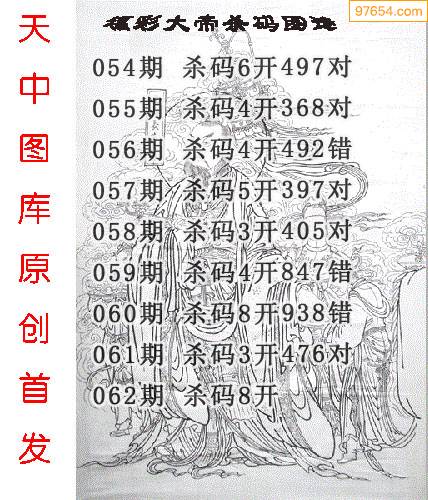 97654.com
福彩大帝杀码图谜
054期 杀码6开497对
055期 杀码4开368对
056期 杀码4开492错
057期 杀码5开397对
058期 杀码3开405对
059期 杀码4开847错
060期 杀码8开938错
061期 杀码3开476对
062期 杀码8开
天中图库原创首发